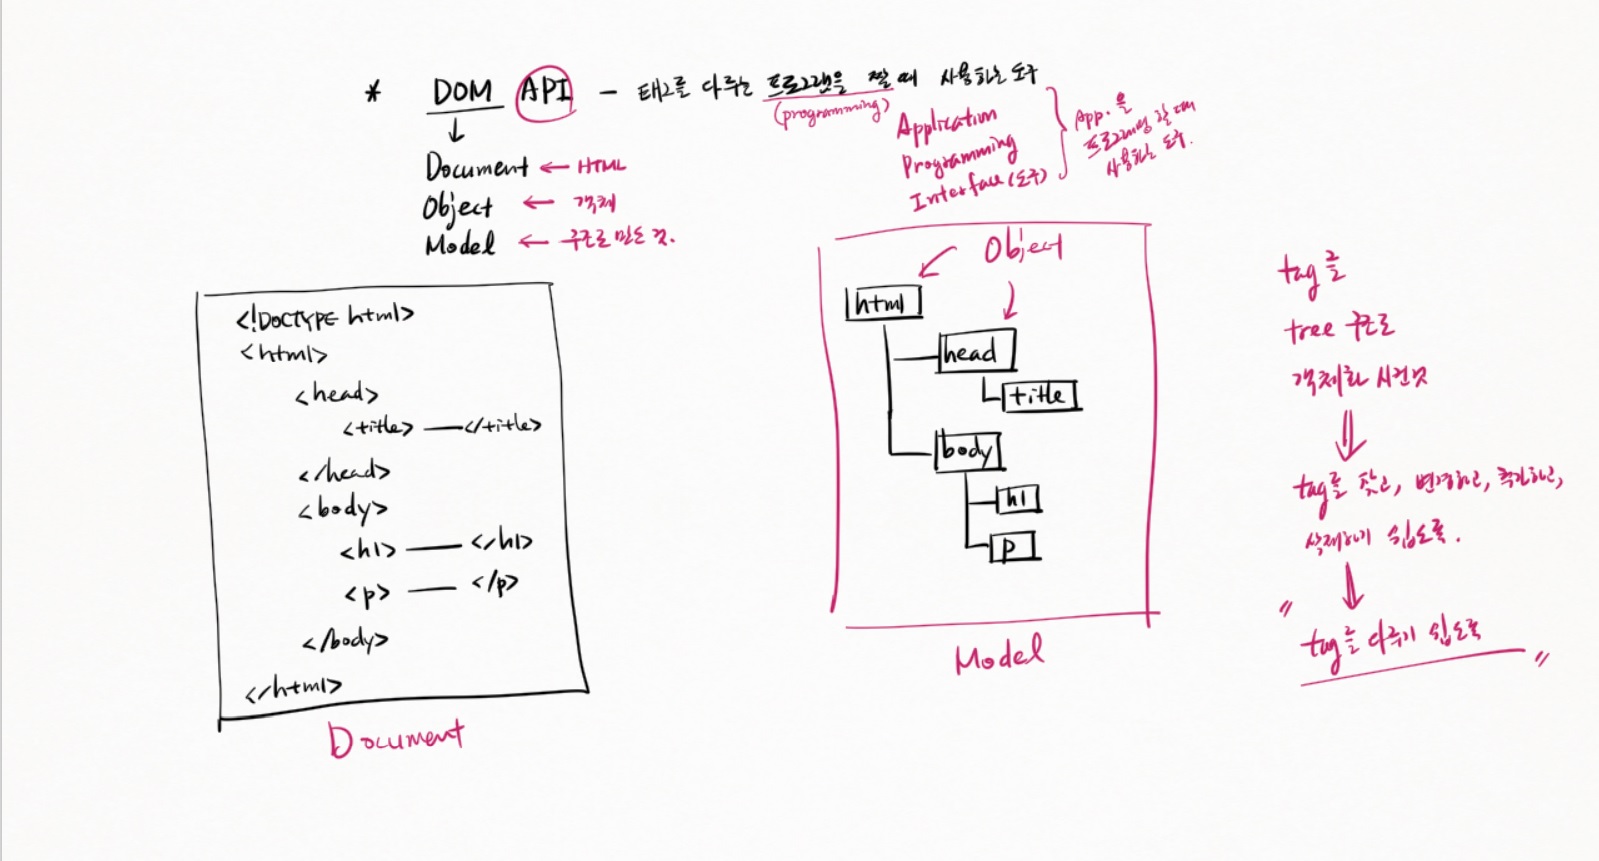 * DOM API - 태그를 다루는 프로그램을 짤 때 사용하는 도구
(programming)
Application
Programming
Interface (도구)
App.을
프로그래밍 할 때
사용하는 도구.
Document ← HTML
Object ← 객체
Model ← 구조로 만든 것.
<!DOCTYPE html>
<html>
<head>
<title> — </title>
</head>
<body>
<h1> — </h1>
<p> — </p>
</body>
</html>
Document
Object
html
head
title
body
h1
p
Model
tag를
tree 구조로
객체화 시킨것
tag를 찾고, 변경하고, 추가하고,
삭제하기 쉽도록.
"tag를 다루기 쉽도록"